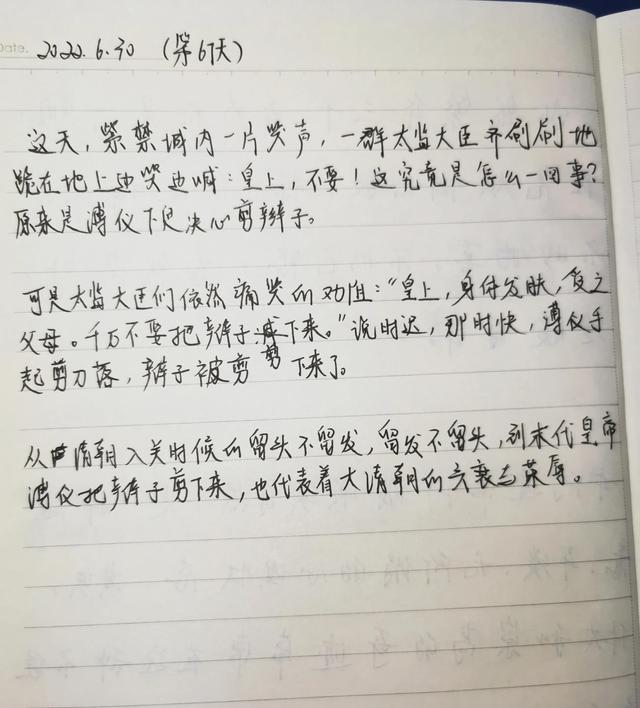 Date. 2022.6.30 (第67天)
这天，紫禁城内一片哭声，一群太监大臣齐刷刷地
跪在地上边哭边喊：皇上，不要！这究竟是怎么一回事？
原来是溥仪下定决心剪辫子。
可是太监大臣们依然痛哭的劝阻：“皇上，身体发肤，受之
父母。千万不要把辫子剪下来。”说时迟，那时快，溥仪手
起剪刀落，辫子被剪下来了。
从清朝入关时候的留头不留发，留发不留头，到末代皇帝
溥仪把辫子剪下来，也代表着大清朝的兴衰与荣辱。